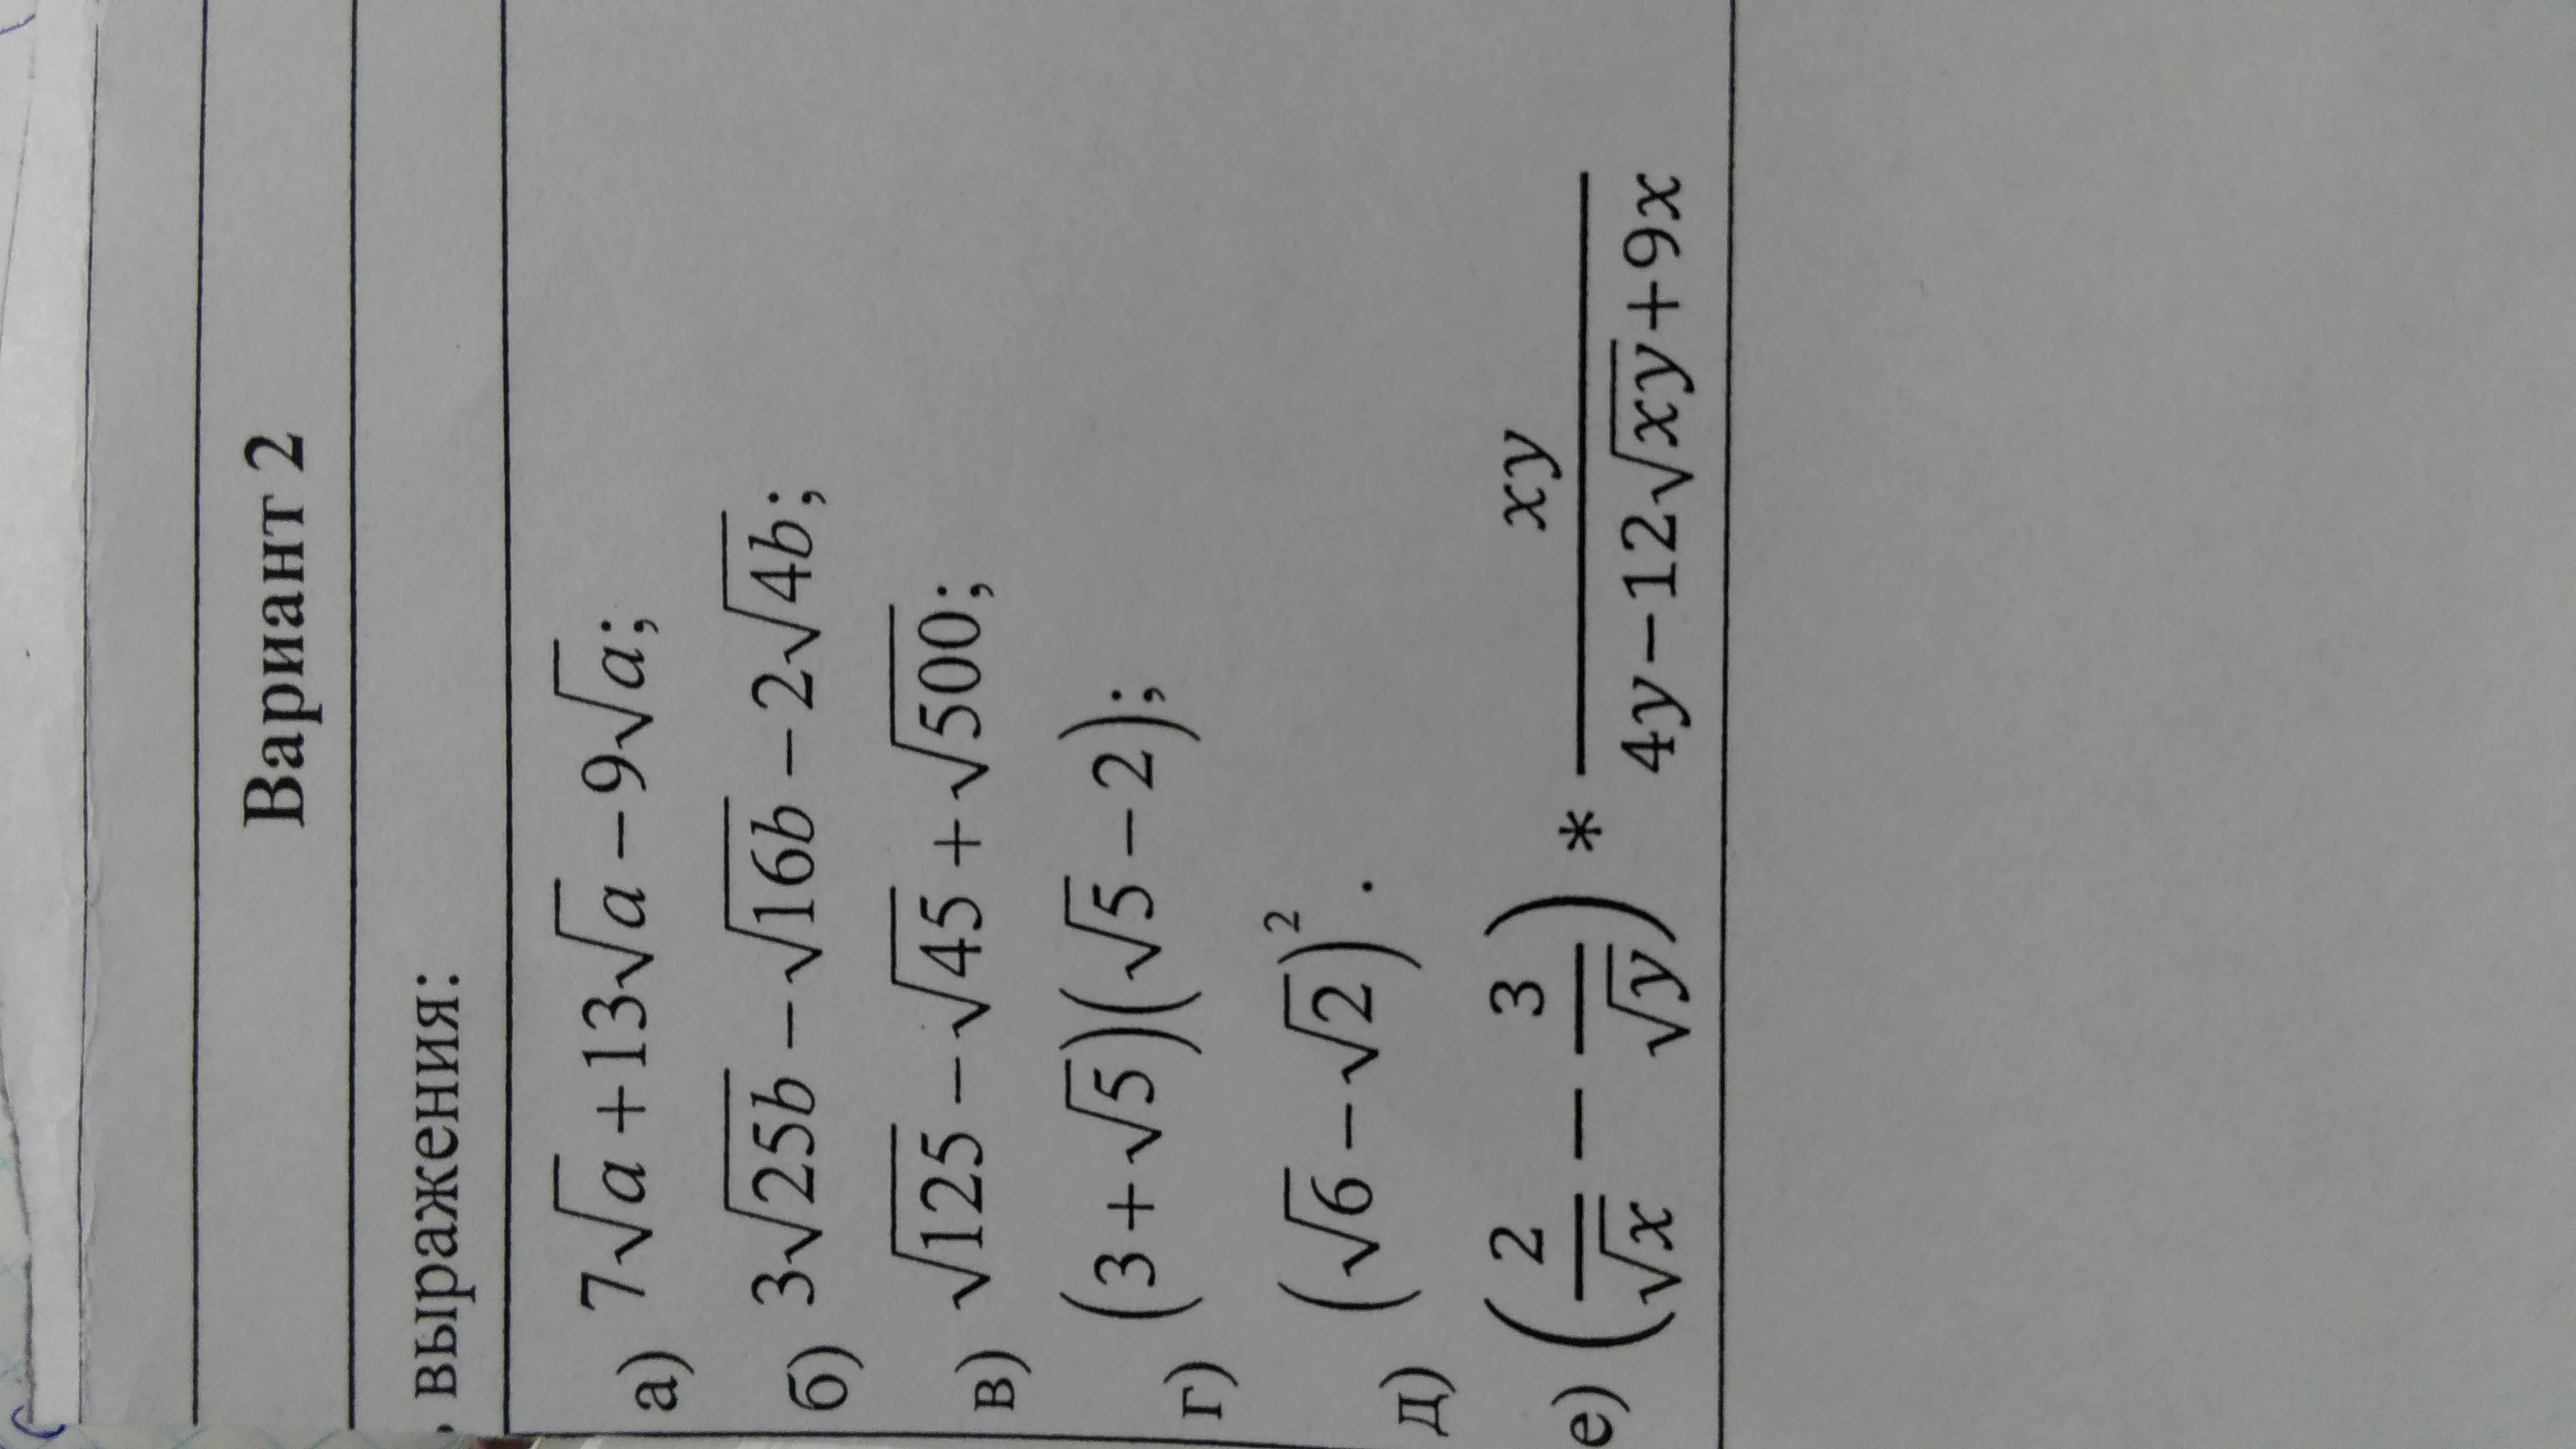 Вариант 2
выражения:
а) 7√a + 13√a − 9√a;
б) 3√25b − √16b − 2√4b;
в) √125 − √45 + √500;
г) (3 + √5)(√5 − 2);
д) (√6 − √2)².
е) (2/√x − 3/√y) * xy/(4y−12√xy+9x)